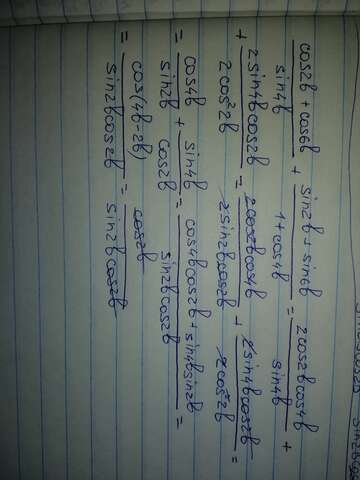 (cos2b + cos6b)/sin4b + (sin2b + sin6b)/(1 + cos4b) = 2cos2bcos4b/sin4b +
+ 2sin4bcos2b/2cos²2b = 2cos2bcos4b/2sin2bcos2b + 2sin4bcos2b/2cos²2b =
= cos4b/sin2b + sin4b/cos2b = (cos4bcos2b + sin4bsin2b)/sin2bcos2b =
= cos(4b-2b)/sin2bcos2b = cos2b/sin2bcos2b